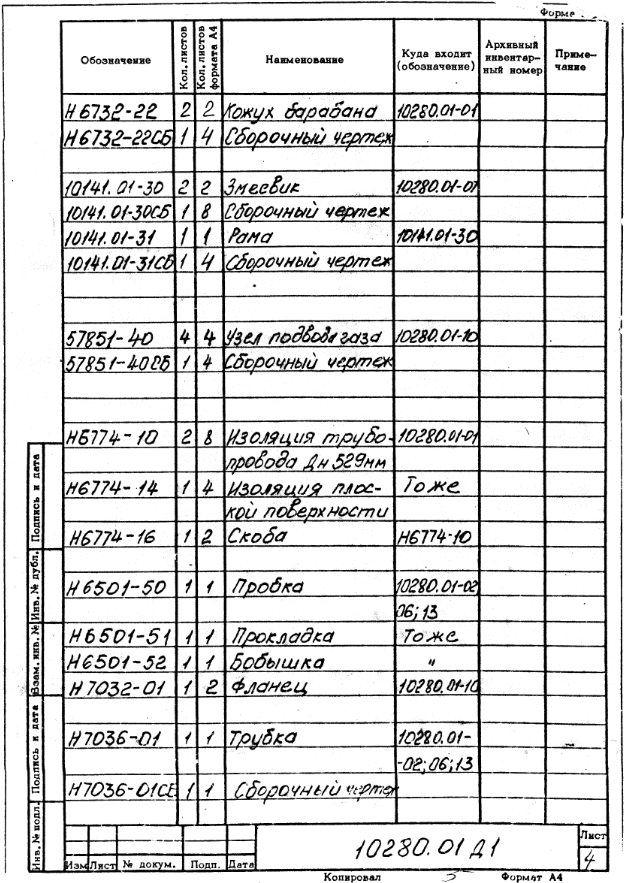 Форма
Обозначение Кол. листов Кол. листов формата А4 Наименование Куда входит (обозначение) Архивный инвентар-ный номер Приме-чание
Н6732-22 2 2 Кожух барабана 10280.01-01
Н6732-22СБ 1 4 Сборочный чертеж
10141.01-30 2 2 Змеевик 10280.01-01
10141.01-30СБ 1 8 Сборочный чертеж
10141.01-31 1 1 Рама 10141.01-30
10141.01-31СБ 1 4 Сборочный чертеж
57851-40 4 4 Узел подвода газа 10280.01-10
57851-40СБ 1 4 Сборочный чертеж
Н6774-10 2 8 Изоляция трубо- 10280.01-01
провода Дн 529мм
Н6774-14 1 4 Изоляция плос- То же
кой поверхности
Н6774-16 1 2 Скоба Н6774-10
Н6501-50 1 1 Пробка 10280.01-02
06; 13
Н6501-51 1 1 Прокладка То же
Н6501-52 1 1 Бобышка "
Н7032-01 1 2 Фланец 10280.01-10
Н7036-01 1 1 Трубка 10280.01-
-02; 06; 13
Н7036-01СБ 1 1 Сборочный чертеж
Инв. № подл. Подпись и дата Взам. инв. № Инв. № дубл. Подпись и дата
10280.01 Д1
Лист
4
Изм Лист № докум. Подп. Дата
Копировал 5 Формат А4